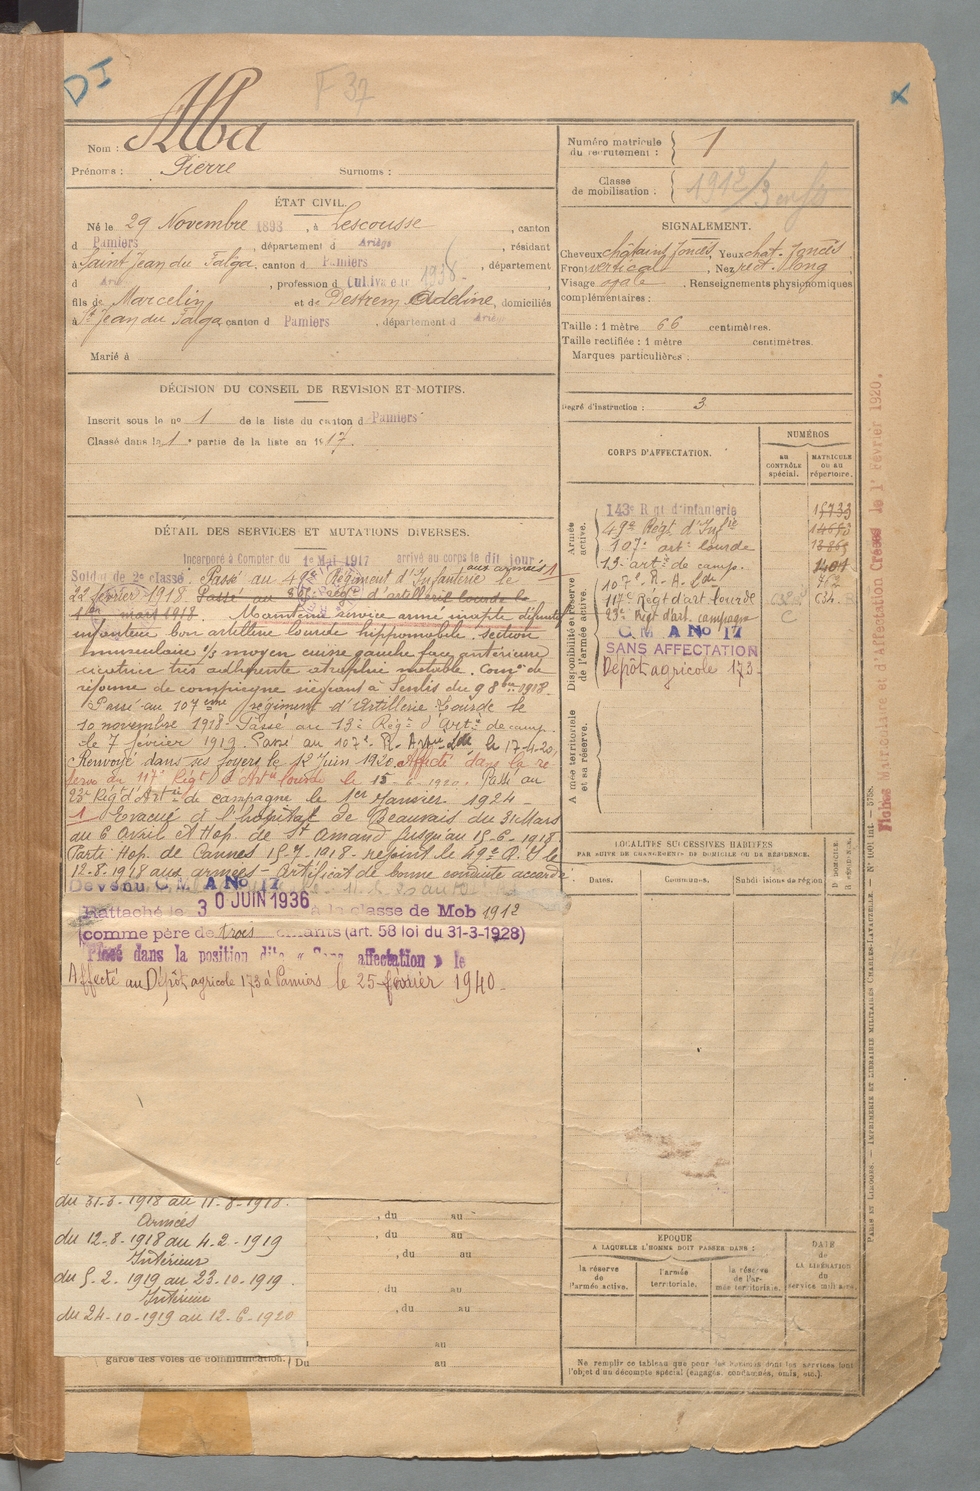 DI
F 37
X
Nom : Alba
Prénoms : Pierre Surnoms :
ÉTAT CIVIL.
Né le 29 Novembre 1898, à Lescousse, canton
d Pamiers, département d Ariège, résidant
à Saint Jean du Falga, canton d Pamiers, département
d Ariège, profession d Cultivateur 1938
fils de Marcelin et de Destrem Adeline, domiciliés
à St Jean du Falga canton d Pamiers, département d Ariège
Marié à
DÉCISION DU CONSEIL DE REVISION ET MOTIFS.
Inscrit sous le no 1 de la liste du canton d Pamiers
Classé dans la 1e partie de la liste en 1917.
DÉTAIL DES SERVICES ET MUTATIONS DIVERSES.
Incorporé à Compter du 1er Mai 1917 arrivé au corps le dit jour
Soldat de 2e classe. Passé au 49e Régiment d'Infanterie le aux armées 1
22 février 1918 Passé au Régt d'artillerie lourde le
1er mars 1918. Maintenu service armé inapte
infanterie bon artillerie lourde hippomobile. section
musculaire 1/3 moyen cuisse gauche face antérieure
cicatrice très adhérente atrophie notable. Comon de
réforme de compiègne siégeant à Senlis du 9 8bre 1918.
Passé au 107eme régiment d'Artillerie Lourde le
10 novembre 1918. Passé au 13e Régt d'Artie de camp.
le 7 février 1919. Passé au 107e R. Arter Lde le 17-4-20
Renvoyé dans ses foyers le 12 juin 1920. Affecté dans la re-
serve au 117e Régt d'Artie lourde le 15-6-1920. Passé au
23e Régt d'Artie de campagne le 1er Janvier 1924 -
1 Evacué à l'hôpital de Beauvais du 31 Mars
au 6 Avril et Hop. de St Amand jusqu'au 15-6-1918.
Parti Hop. de Cannes 15-7-1918 - rejoint le 49e R.I le
12-8-1918 aux armées - Certificat de bonne conduite accordé
Devenu C. M. A No 17
Rattaché le 30 JUIN 1936 à la classe de Mob 1912
(comme père de trois enfants (art. 58 loi du 31-3-1928)
Placé dans la position dite « Sans affectation » le
Affecté au Dépôt agricole 173 à Pamiers le 25 février 1940 -
du 31-3-1918 au 11-8-1918.
Armées
du 12-8-1918 au 4-2-1919
Intérieur
du 5-2-1919 au 23-10-1919.
Intérieur
du 24-10-1919 au 12-6-1920
, du au
, du au
, du au
du au
, du au
au
garde des voies de communication. Du au
Numéro matricule
du recrutement : 1
Classe
de mobilisation : 1912
SIGNALEMENT.
Cheveux châtains foncés, Yeux chat. foncés
Front vertical, Nez rect. long
Visage ovale. Renseignements physionomiques
complémentaires :
Taille : 1 mètre 66 centimètres.
Taille rectifiée : 1 mètre centimètres.
Marques particulières :
Degré d'instruction : 3
CORPS D'AFFECTATION.
NUMÉROS
au CONTRÔLE spécial.
MATRICULE ou au répertoire.
Armée active.
143e Rgt d'infanterie 15733
49e Régt d'Infie
107e art. lourde
13e arte de camp.
Disponibilité et réserve de l'armée active.
107e R. A. Lde
117e Régt d'art Lourde
23e Régt d'art. campagne C
C M A No 17
SANS AFFECTATION
Dépôt agricole 173
Armée territoriale et sa réserve.
LOCALITÉS SUCCESSIVES HABITÉES
PAR SUITE DE CHANGEMENTS DE DOMICILE OU DE RÉSIDENCE.
Dates. Communes. Subdivisions de région D DOMICILE. R RÉSIDENCE.
EPOQUE
A LAQUELLE L'HOMME DOIT PASSER DANS :
la réserve de l'armée active.
l'armée territoriale.
la réserve de l'armée territoriale.
DATE de LA LIBÉRATION du service militaire.
Ne remplir ce tableau que pour les hommes dont les services font
l'objet d'un décompte spécial (engagés, condamnés, omis, etc.).
Fiches Matriculaire et d'Affectation Créées le 1er Février 1920.
PARIS ET LIMOGES. — IMPRIMERIE ET LIBRAIRIE MILITAIRES CHARLES-LAVAUZELLE. —